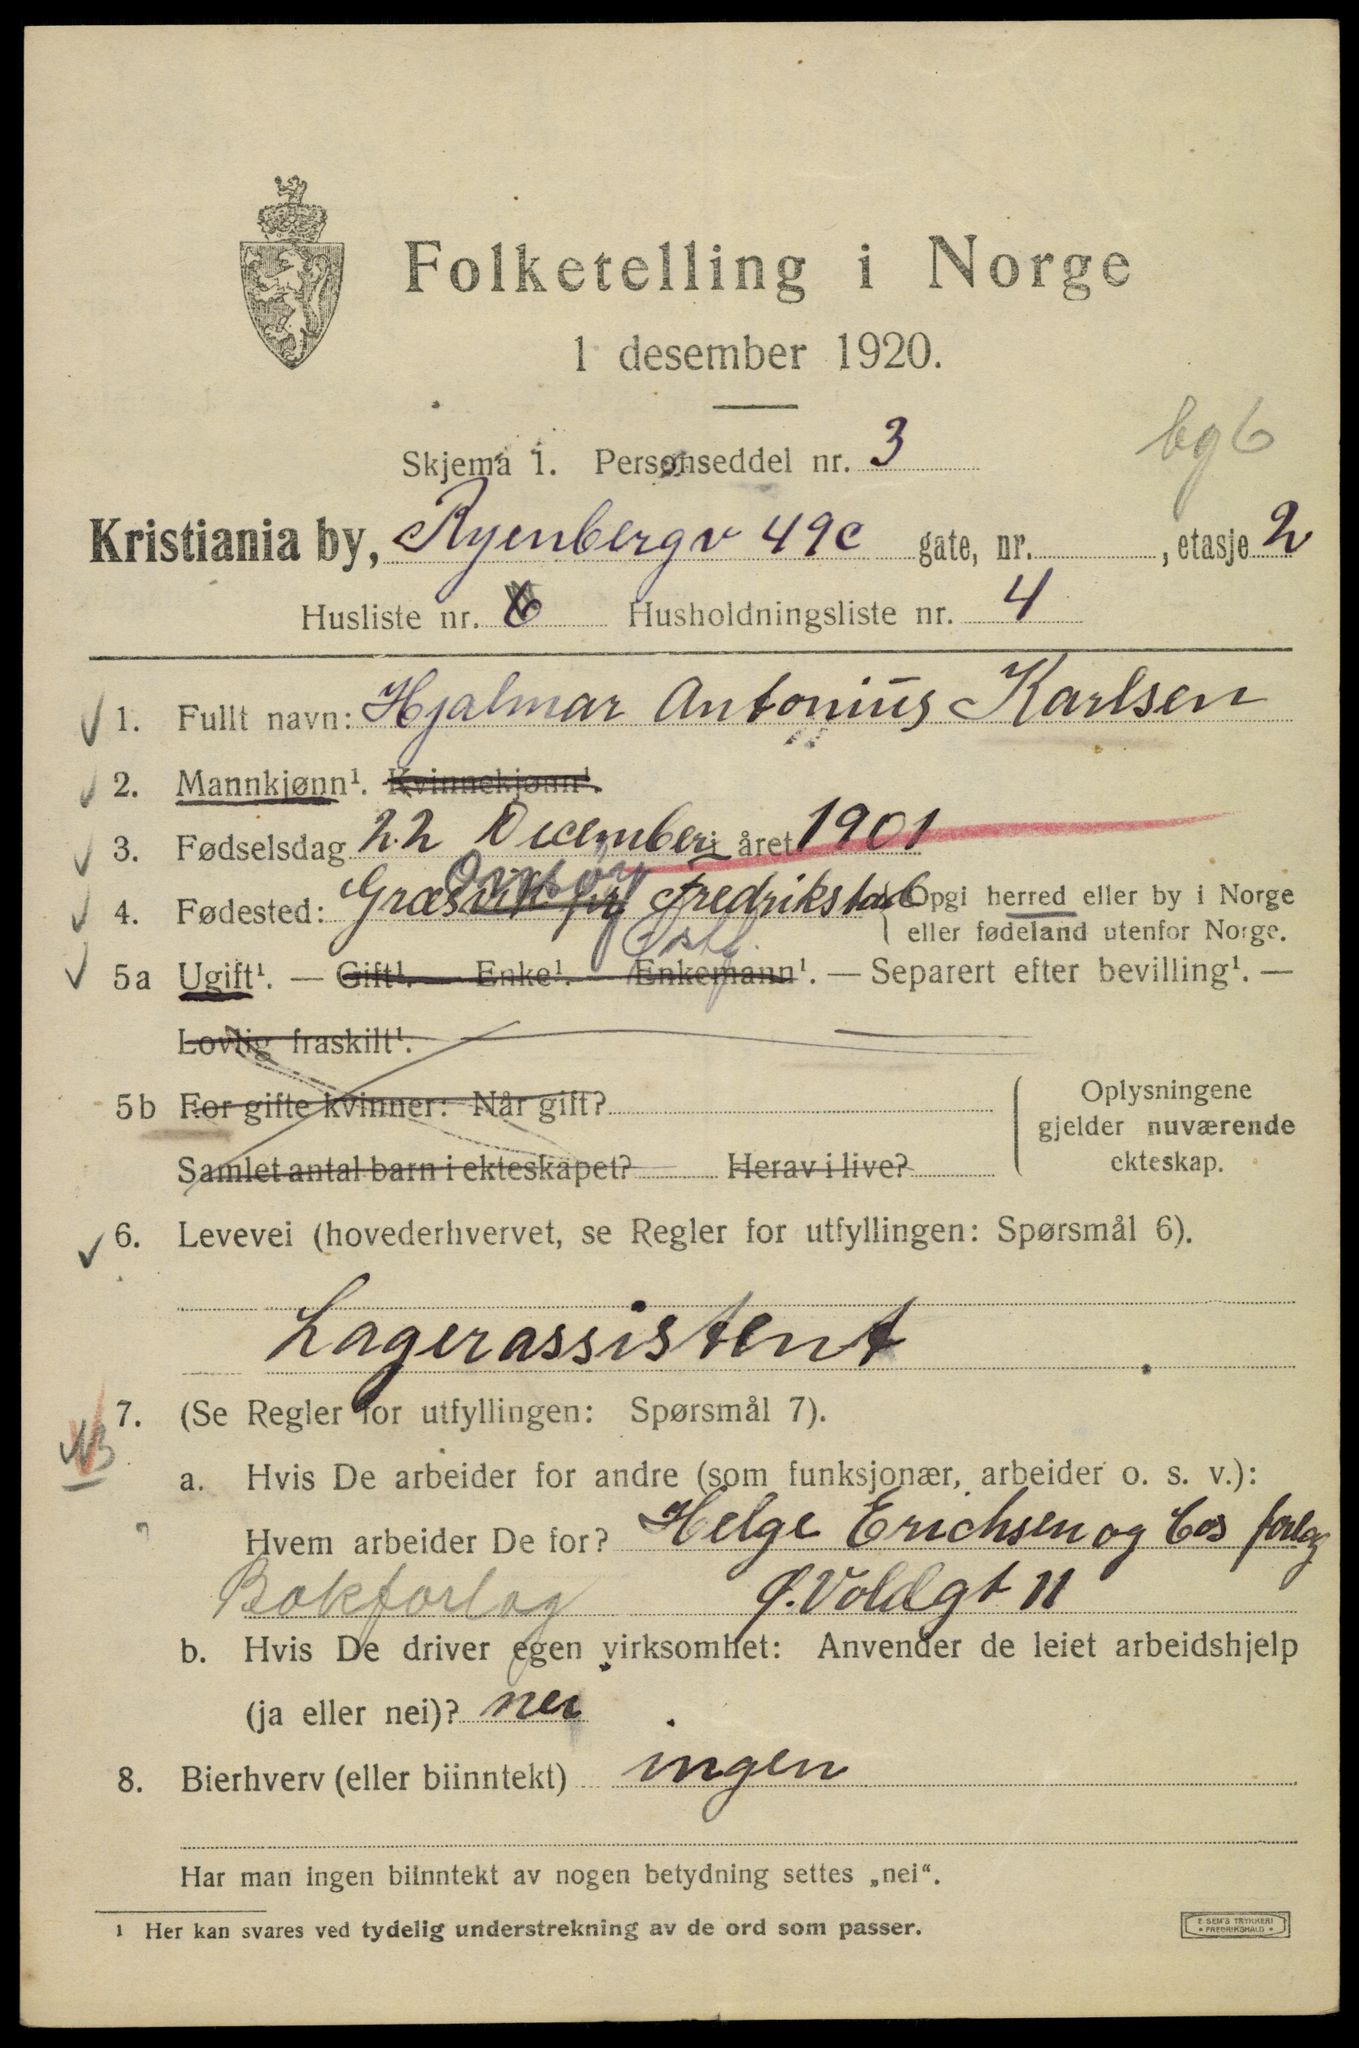 Folketelling i Norge
1 desember 1920.
Skjema 1. Personseddel nr. 3
bg6
Kristiania by, Ryenbergv 49c gate, nr. , etasje 2
Husliste nr. 6 Husholdningsliste nr. 4
1. Fullt navn: Hjalmar Antonius Karlsen
2. Mannkjønn¹. Kvinnekjønn¹.
3. Fødselsdag 22 December i året 1901
Onsøy
4. Fødested: Græsvik pr Fredrikstad Opgi herred eller by i Norge
Østf. eller fødeland utenfor Norge.
5a Ugift¹. — Gift¹. Enke¹. — Enkemann¹. — Separert efter bevilling¹. —
Lovlig fraskilt¹.
5b For gifte kvinner: Når gift?
Samlet antal barn i ekteskapet? Herav i live?
Oplysningene
gjelder nuværende
ekteskap.
6. Levevei (hovederhvervet, se Regler for utfyllingen: Spørsmål 6).
Lagerassistent
7. (Se Regler for utfyllingen: Spørsmål 7).
NB
a. Hvis De arbeider for andre (som funksjonær, arbeider o. s. v.):
Hvem arbeider De for? Helge Erichsen og Cos forlag
Bokforlag Ø. Voldgt 11
b. Hvis De driver egen virksomhet: Anvender de leiet arbeidshjelp
(ja eller nei)? nei
8. Bierhverv (eller biinntekt) ingen
Har man ingen biinntekt av nogen betydning settes „nei“.
¹ Her kan svares ved tydelig understrekning av de ord som passer.
E. SEM'S TRYKKERI
• FREDRIKSHALD •